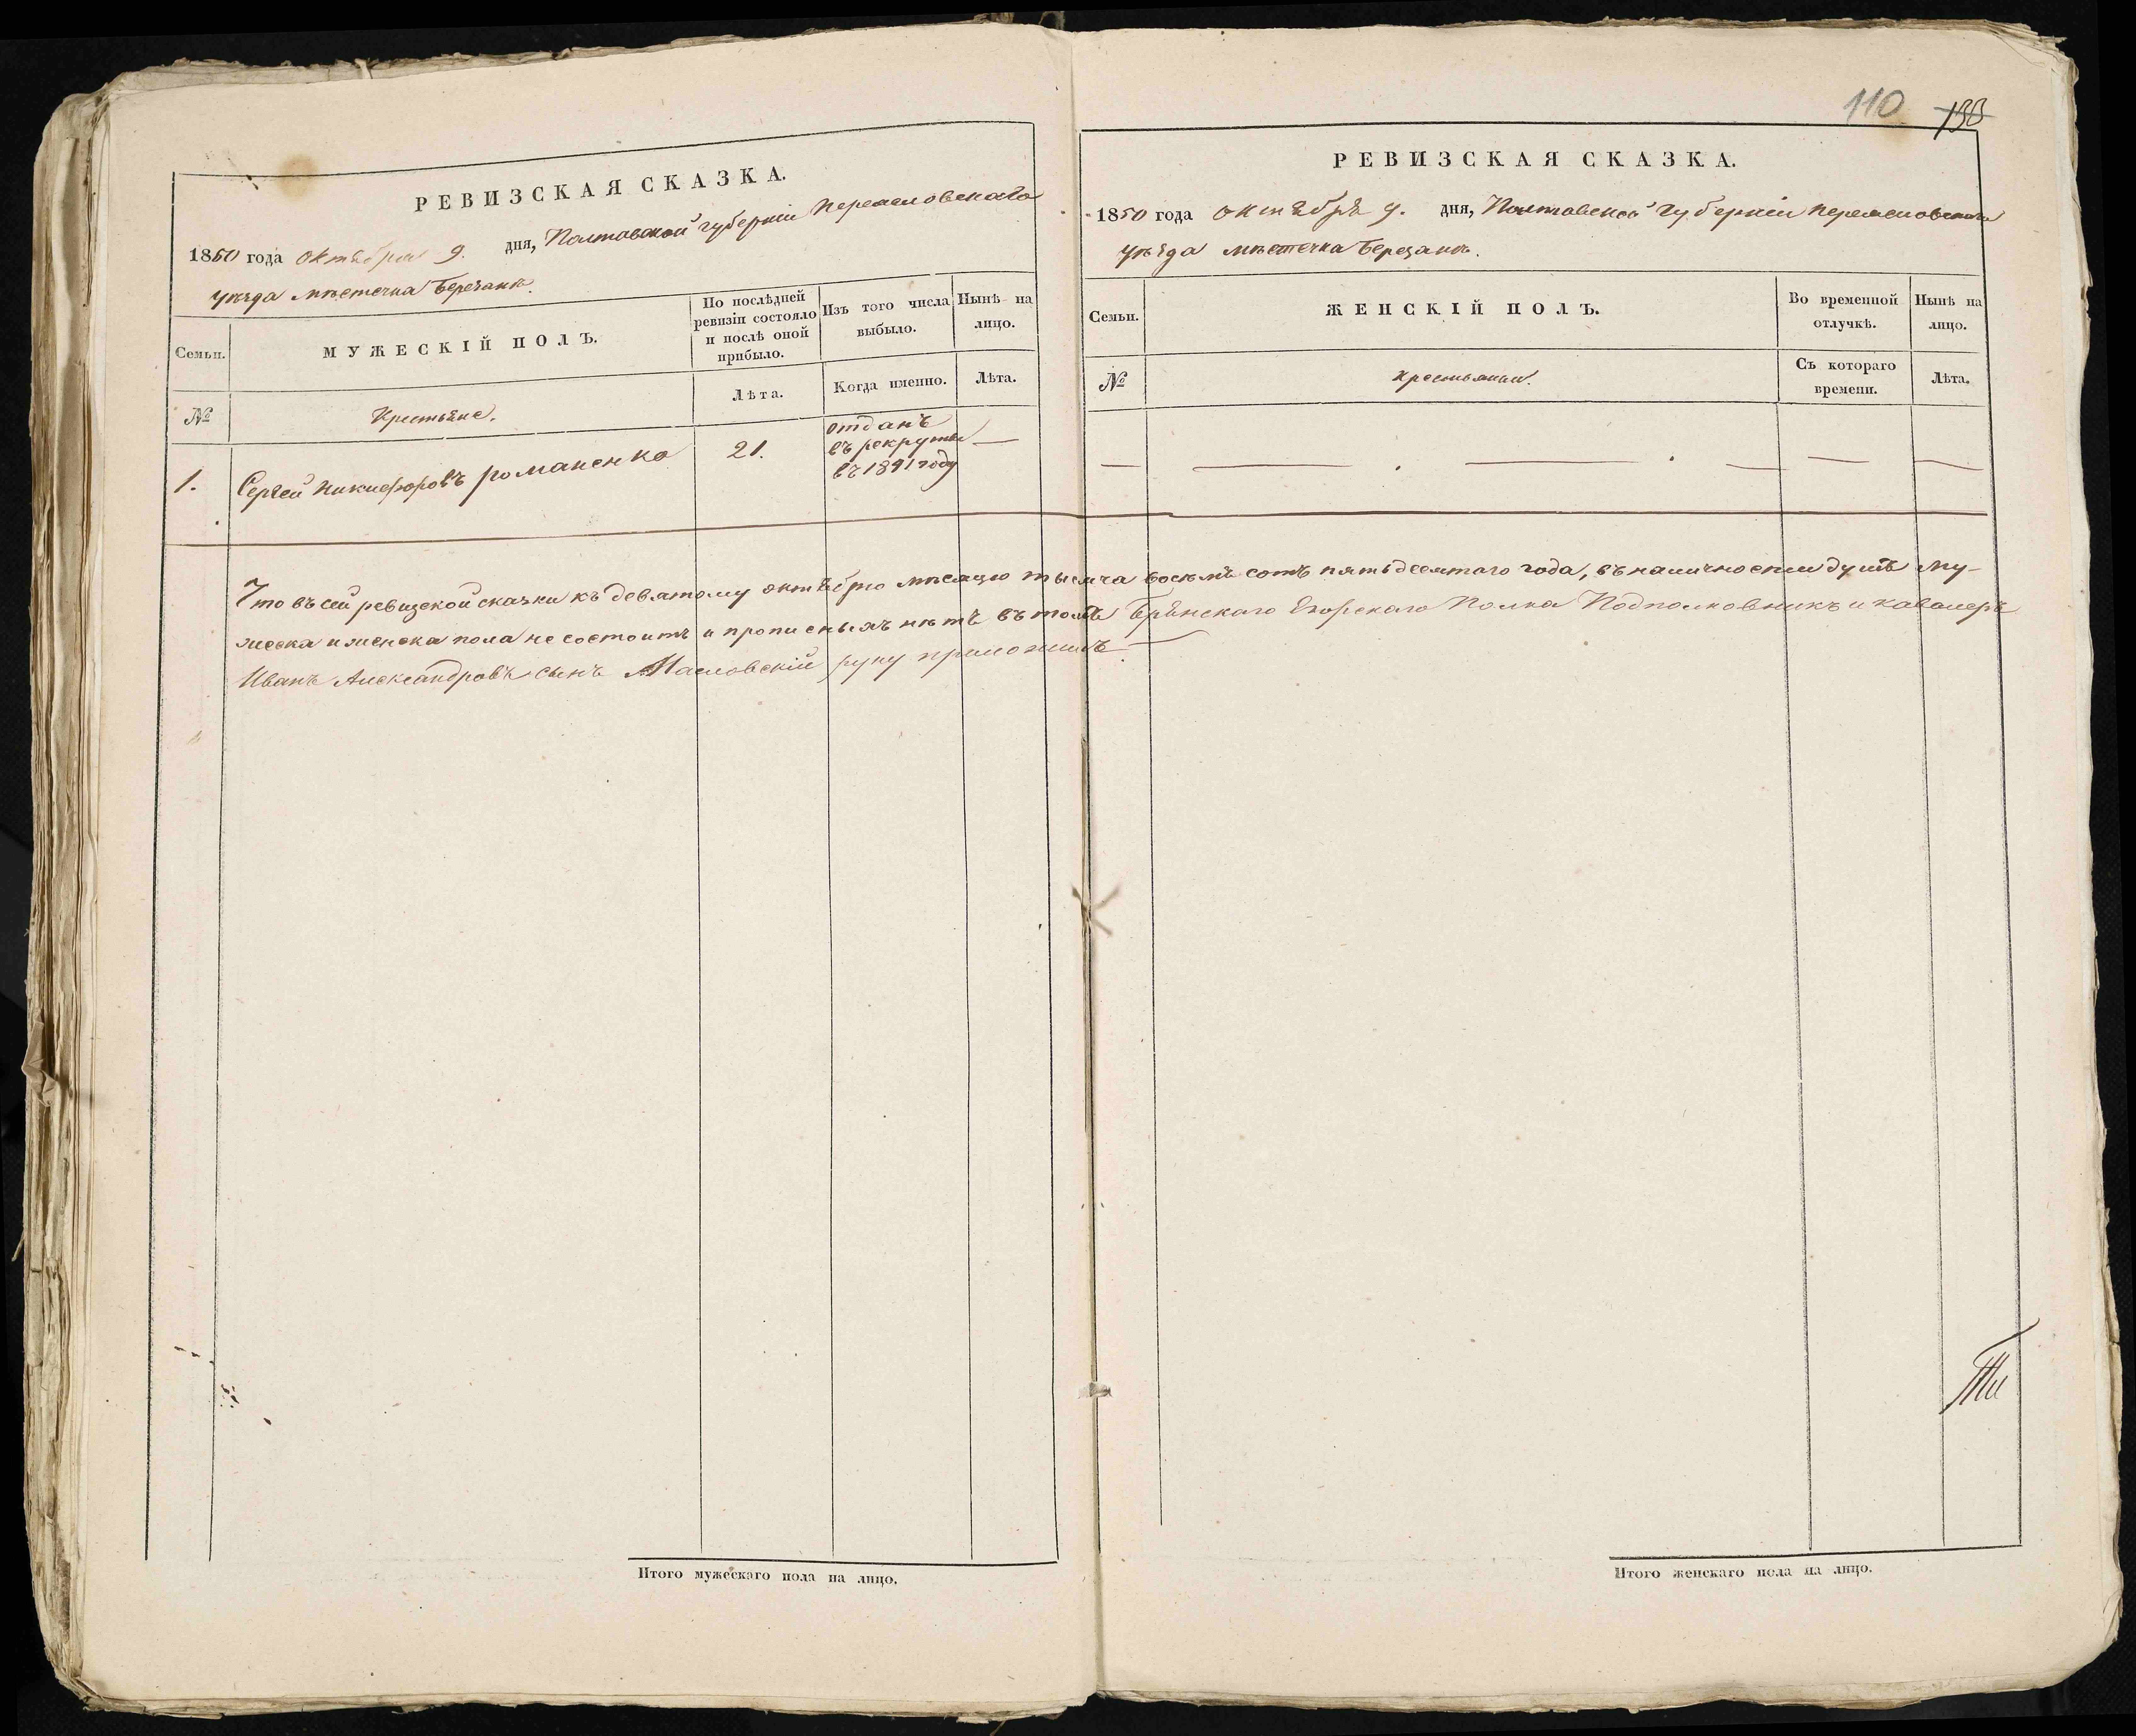 РЕВИЗСКАЯ СКАЗКА.
1850 года октября 9. дня, Полтавской губерніи Переясловскаго
уѣзда мѣстечка Березанѣ.
Семьи.
МУЖЕСКІЙ ПОЛЪ.
По послѣдней ревизіи состояло и послѣ оной прибыло.
Изъ того числа выбыло.
Нынѣ на лицо.
№
Крестьяне.
Лѣта.
Когда именно.
Лѣта.
1.
Сергей Никифоровъ Романенко
21.
отданъ
въ рекруты
въ 1841 году
—
Что въ сей ревизской сказки къ девятому октябрю мѣсяцю тысяча восемъ сотъ пятьдесятаго года, въ наличности душъ му-
жеска и женска пола не состоитъ и прописныхъ нѣтъ въ томъ Брянскаго Егорскаго Полка Подполковникъ и кавалеръ
Иванъ Александровъ сынъ Масловскій руку приложилъ —
Итого мужескаго пола на лицо.
110 133
РЕВИЗСКАЯ СКАЗКА.
1850 года октября 9. дня, Полтавской губерніи Переясловскаго
уѣзда мѣстечка Березанѣ.
Семьи.
ЖЕНСКІЙ ПОЛЪ.
Во временной отлучкѣ.
Нынѣ на лицо.
№
Крестьянки.
Съ котораго времени.
Лѣта.
Итого женскаго пола на лицо.